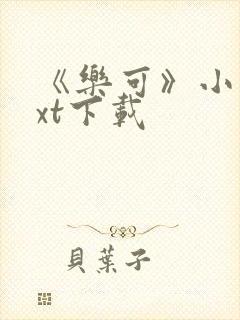 《樂可》小
xt下載
貝葉子